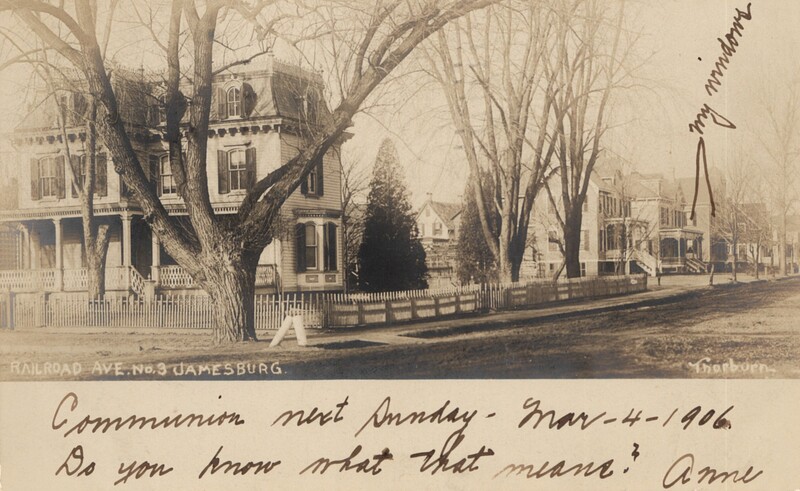 my windows
RAILROAD AVE. No. 3 JAMESBURG.
Thorburn
Communion next Sunday - Mar - 4 - 1906
Do you know what that means? Anne